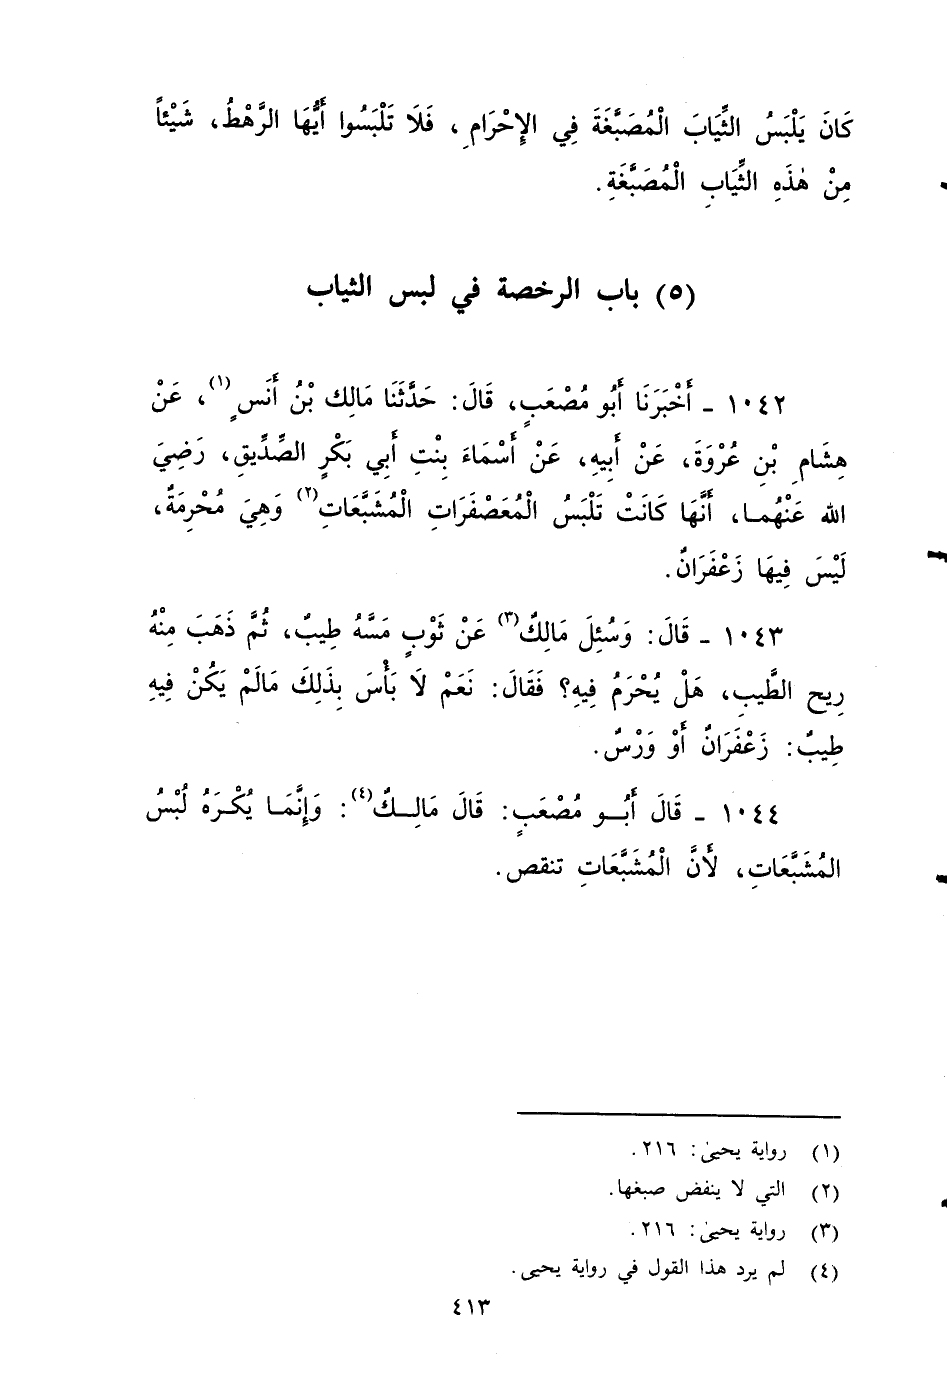 كَانَ يَلْبَسُ الثِّيَابَ الْمُصَبَّغَةَ فِي الإِحْرَامِ ، فَلَا تَلْبَسُوا أَيُّهَا الرَّهْطُ، شَيْئاً
مِنْ هٰذَهِ الثِّيَابِ الْمُصَبَّغَةِ.
(٥) باب الرخصة في لبس الثياب
١٠٤٢ ـ أَخْبَرَنَا أَبُو مُصْعَبٍ، قَالَ: حَدَّثَنَا مَالِك بْنُ أَنَسٍ(١)، عَنْ
هِشَامِ بْنِ عُرْوَةَ، عَنْ أَبِيهِ، عَنْ أَسْمَاءَ بِنْتِ أَبِي بَكْرٍ الصِّدِّيقِ، رَضِيَ
الله عَنْهُمـا، أَنَّهَا كَانَتْ تَلْبَسُ الْمُعَصْفَرَاتِ الْمُشَبَّعَاتِ(٢) وَهِيَ مُحْرِمَةٌ،
لَيْسَ فِيهَا زَعْفَرَانٌ.
١٠٤٣ ـ قَالَ: وَسُئِلَ مَالِكٌ(٣) عَنْ ثَوْبٍ مَسَّهُ طِيبٌ، ثُمَّ ذَهَبَ مِنْهُ
رِيح الطِّيبِ، هَلْ يُحْرَمُ فِيهِ؟ فَقَالَ: نَعَمْ لَا بَأْسَ بِذَلِكَ مَالَمْ يَكُنْ فِيهِ
طِيبٌ: زَعْفَرَانٌ أَوْ وَرْسٌ.
١٠٤٤ ـ قَالَ أَبُــو مُصْعَبٍ: قَالَ مَالِــكٌ(٤): وَإِنَّمَـا يُكْـرَهُ لُبْسُ
المُشَبَّعَاتِ، لأَنَّ الْمُشَبَّعَاتِ تنقص.
(١) رواية يحيىٰ: ٢١٦.
(٢) التي لا ينفض صبغها.
(٣) رواية يحيىٰ: ٢١٦.
(٤) لم يرد هذا القول في رواية يحيى.
٤١٣